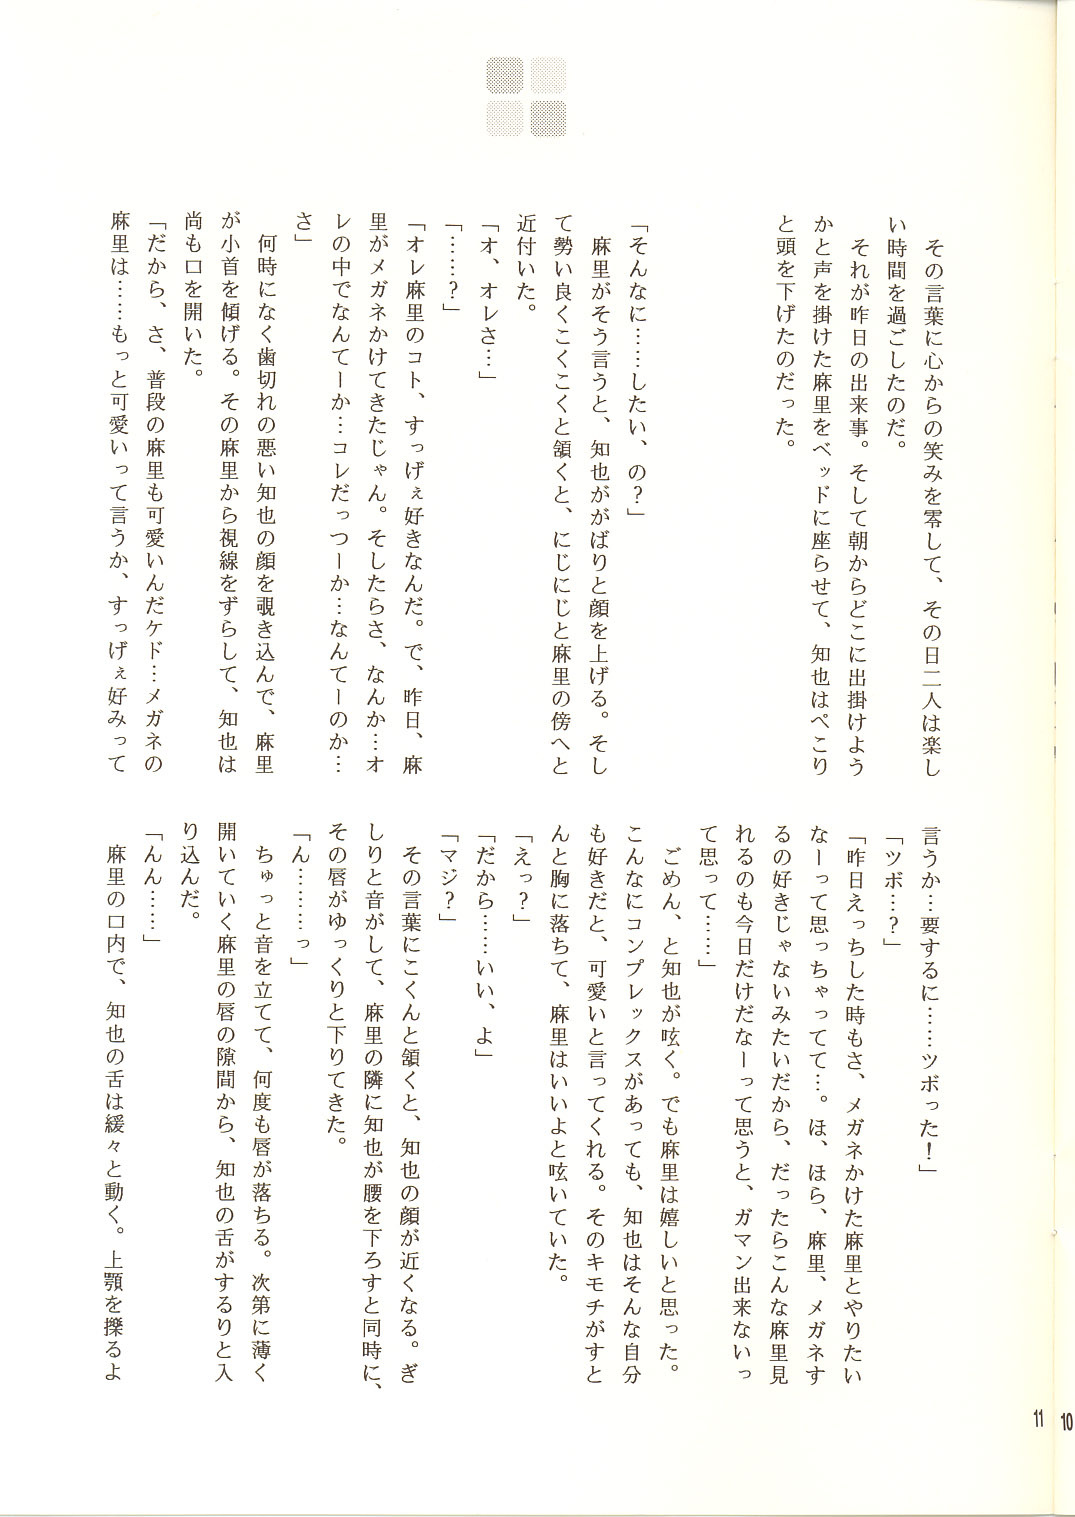 その言葉に心からの笑みを零して、その日二人は楽し
い時間を過ごしたのだ。
それが昨日の出来事。そして朝からどこに出掛けよう
かと声を掛けた麻里をベッドに座らせて、知也はぺこり
と頭を下げたのだった。
「そんなに……したい、の？」
麻里がそう言うと、知也ががばりと顔を上げる。そし
て勢い良くこくこくと頷くと、にじにじと麻里の傍へと
近付いた。
「オ、オレさ…」
「……？」
「オレ麻里のコト、すっげぇ好きなんだ。で、昨日、麻
里がメガネかけてきたじゃん。そしたらさ、なんか…オ
レの中でなんてーか…コレだっつーか…なんてーのか…
さ」
何時になく歯切れの悪い知也の顔を覗き込んで、麻里
が小首を傾げる。その麻里から視線をずらして、知也は
尚も口を開いた。
「だから、さ、普段の麻里も可愛いんだケド…メガネの
麻里は……もっと可愛いって言うか、すっげぇ好みって
言うか…要するに……ツボった！」
「ツボ…？」
「昨日えっちした時もさ、メガネかけた麻里とやりたい
なーって思っちゃってて…。ほ、ほら、麻里、メガネす
るの好きじゃないみたいだから、だったらこんな麻里見
れるのも今日だけだなーって思うと、ガマン出来ないっ
て思って……」
ごめん、と知也が呟く。でも麻里は嬉しいと思った。
こんなにコンプレックスがあっても、知也はそんな自分
も好きだと、可愛いと言ってくれる。そのキモチがすと
んと胸に落ちて、麻里はいいよと呟いていた。
「えっ？」
「だから……いい、よ」
「マジ？」
その言葉にこくんと頷くと、知也の顔が近くなる。ぎ
しりと音がして、麻里の隣に知也が腰を下ろすと同時に、
その唇がゆっくりと下りてきた。
「ん………っ」
ちゅっと音を立てて、何度も唇が落ちる。次第に薄く
開いていく麻里の唇の隙間から、知也の舌がするりと入
り込んだ。
「んん……」
麻里の口内で、知也の舌は緩々と動く。上顎を擽るよ
11
10